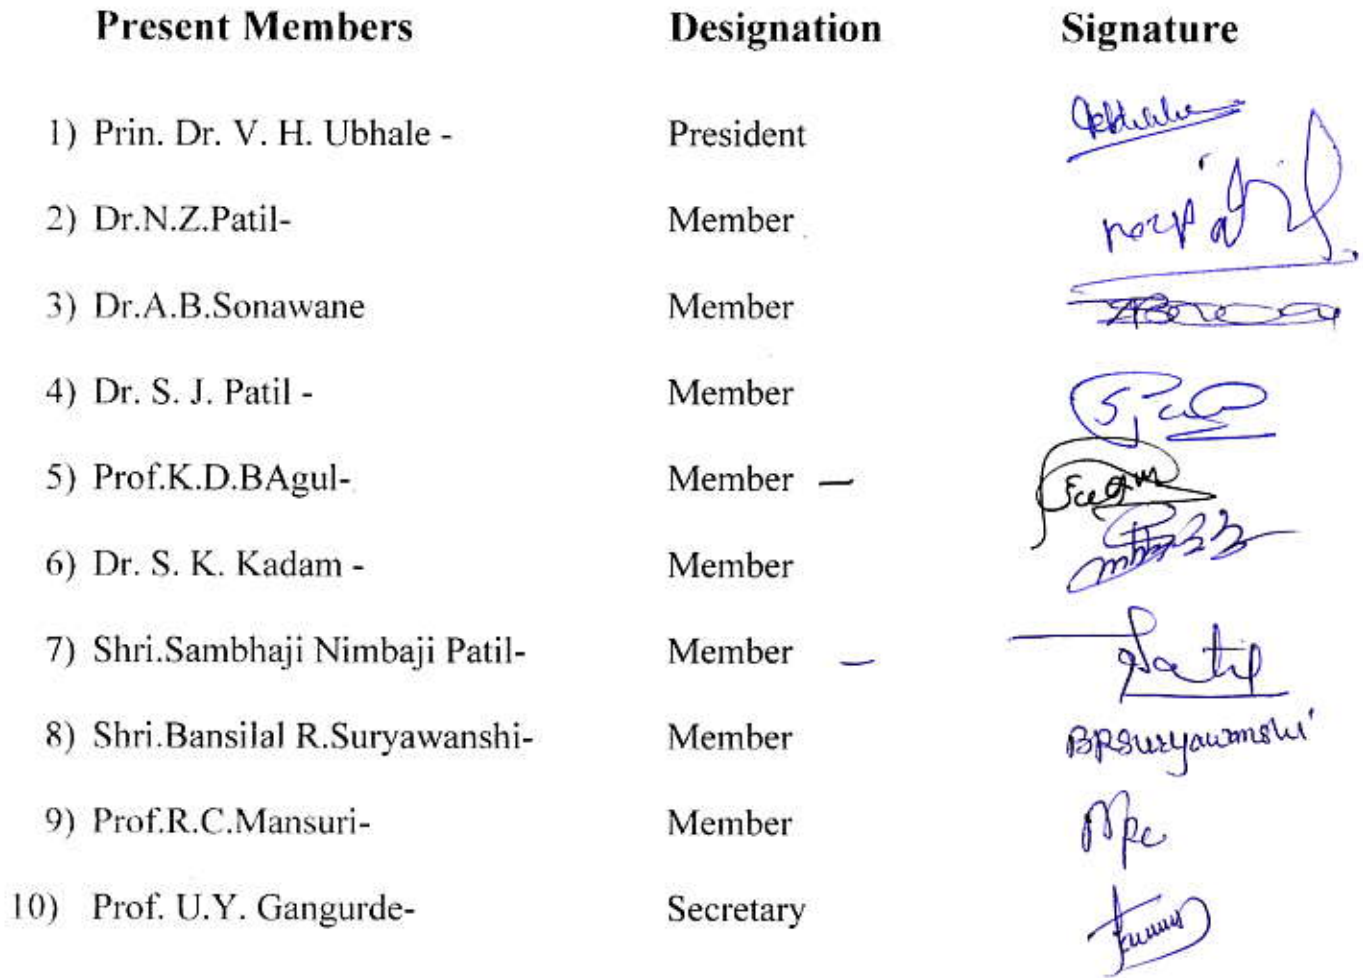 Present Members Designation Signature
1) Prin. Dr. V. H. Ubhale - President
2) Dr.N.Z.Patil- Member
3) Dr.A.B.Sonawane Member
4) Dr. S. J. Patil - Member
5) Prof.K.D.BAgul- Member —
6) Dr. S. K. Kadam - Member
7) Shri.Sambhaji Nimbaji Patil- Member – Patil
8) Shri.Bansilal R.Suryawanshi- Member BRSuryawanshi
9) Prof.R.C.Mansuri- Member
10) Prof. U.Y. Gangurde- Secretary